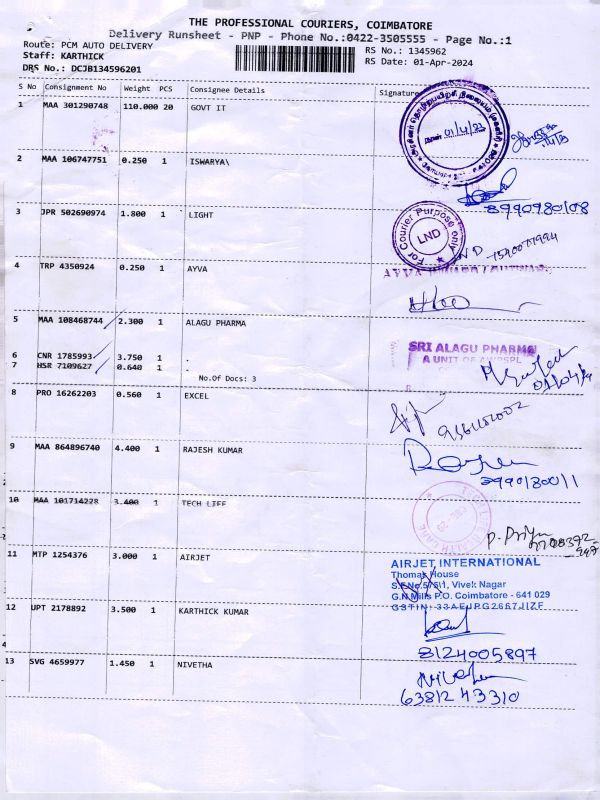 THE PROFESSIONAL COURIERS, COIMBATORE
Delivery Runsheet - PNP - Phone No.:0422-3505555 - Page No.:1
Route: PCM AUTO DELIVERY
Staff: KARTHICK
DRS No.: DCJB134596201
RS No.: 1345962
RS Date: 01-Apr-2024
S No Consignment No Weight PCS Consignee Details Signature
1 MAA 301290748 110.000 20 GOVT IT
2 MAA 106747751 0.250 1 ISWARYA\
8990980108
3 JPR 502690974 1.800 1 LIGHT
For Courier Purpose only
LND
4 TRP 4350924 0.250 1 AYVA
AYVA
5 MAA 108468744 2.300 1 ALAGU PHARMA
SRI ALAGU PHARMA
A UNIT OF
6 CNR 1785993 3.750 1 .
7 HSR 7109627 0.640 1 .
No.Of Docs: 3
01/04/24
8 PRO 16262203 0.560 1 EXCEL
9 MAA 864896740 4.400 1 RAJESH KUMAR
10 MAA 101714228 3.400 1 TECH LIFE
P. Priya
11 MTP 1254376 3.000 1 AIRJET
AIRJET INTERNATIONAL
Thomas House
S.F.No.575\1, Vivek Nagar
G.N.Mills P.O. Coimbatore - 641 029
GSTIN: 33AEJPG2667J1ZF
12 UPT 2178892 3.500 1 KARTHICK KUMAR
8124005897
13 SVG 4659977 1.450 1 NIVETHA
6381243310